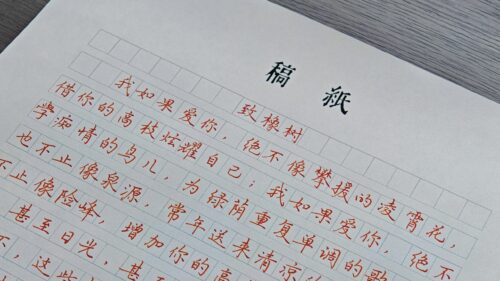 稿 紙
致橡树
我如果爱你，绝不像攀援的凌霄花，
借你的高枝炫耀自己；我如果爱你，绝不
學痴情的鸟儿，为绿荫重复单调的歌
也不止像泉源，常年送来清凉的
不止像险峰，增加你的高
甚至日光，甚
不，这些